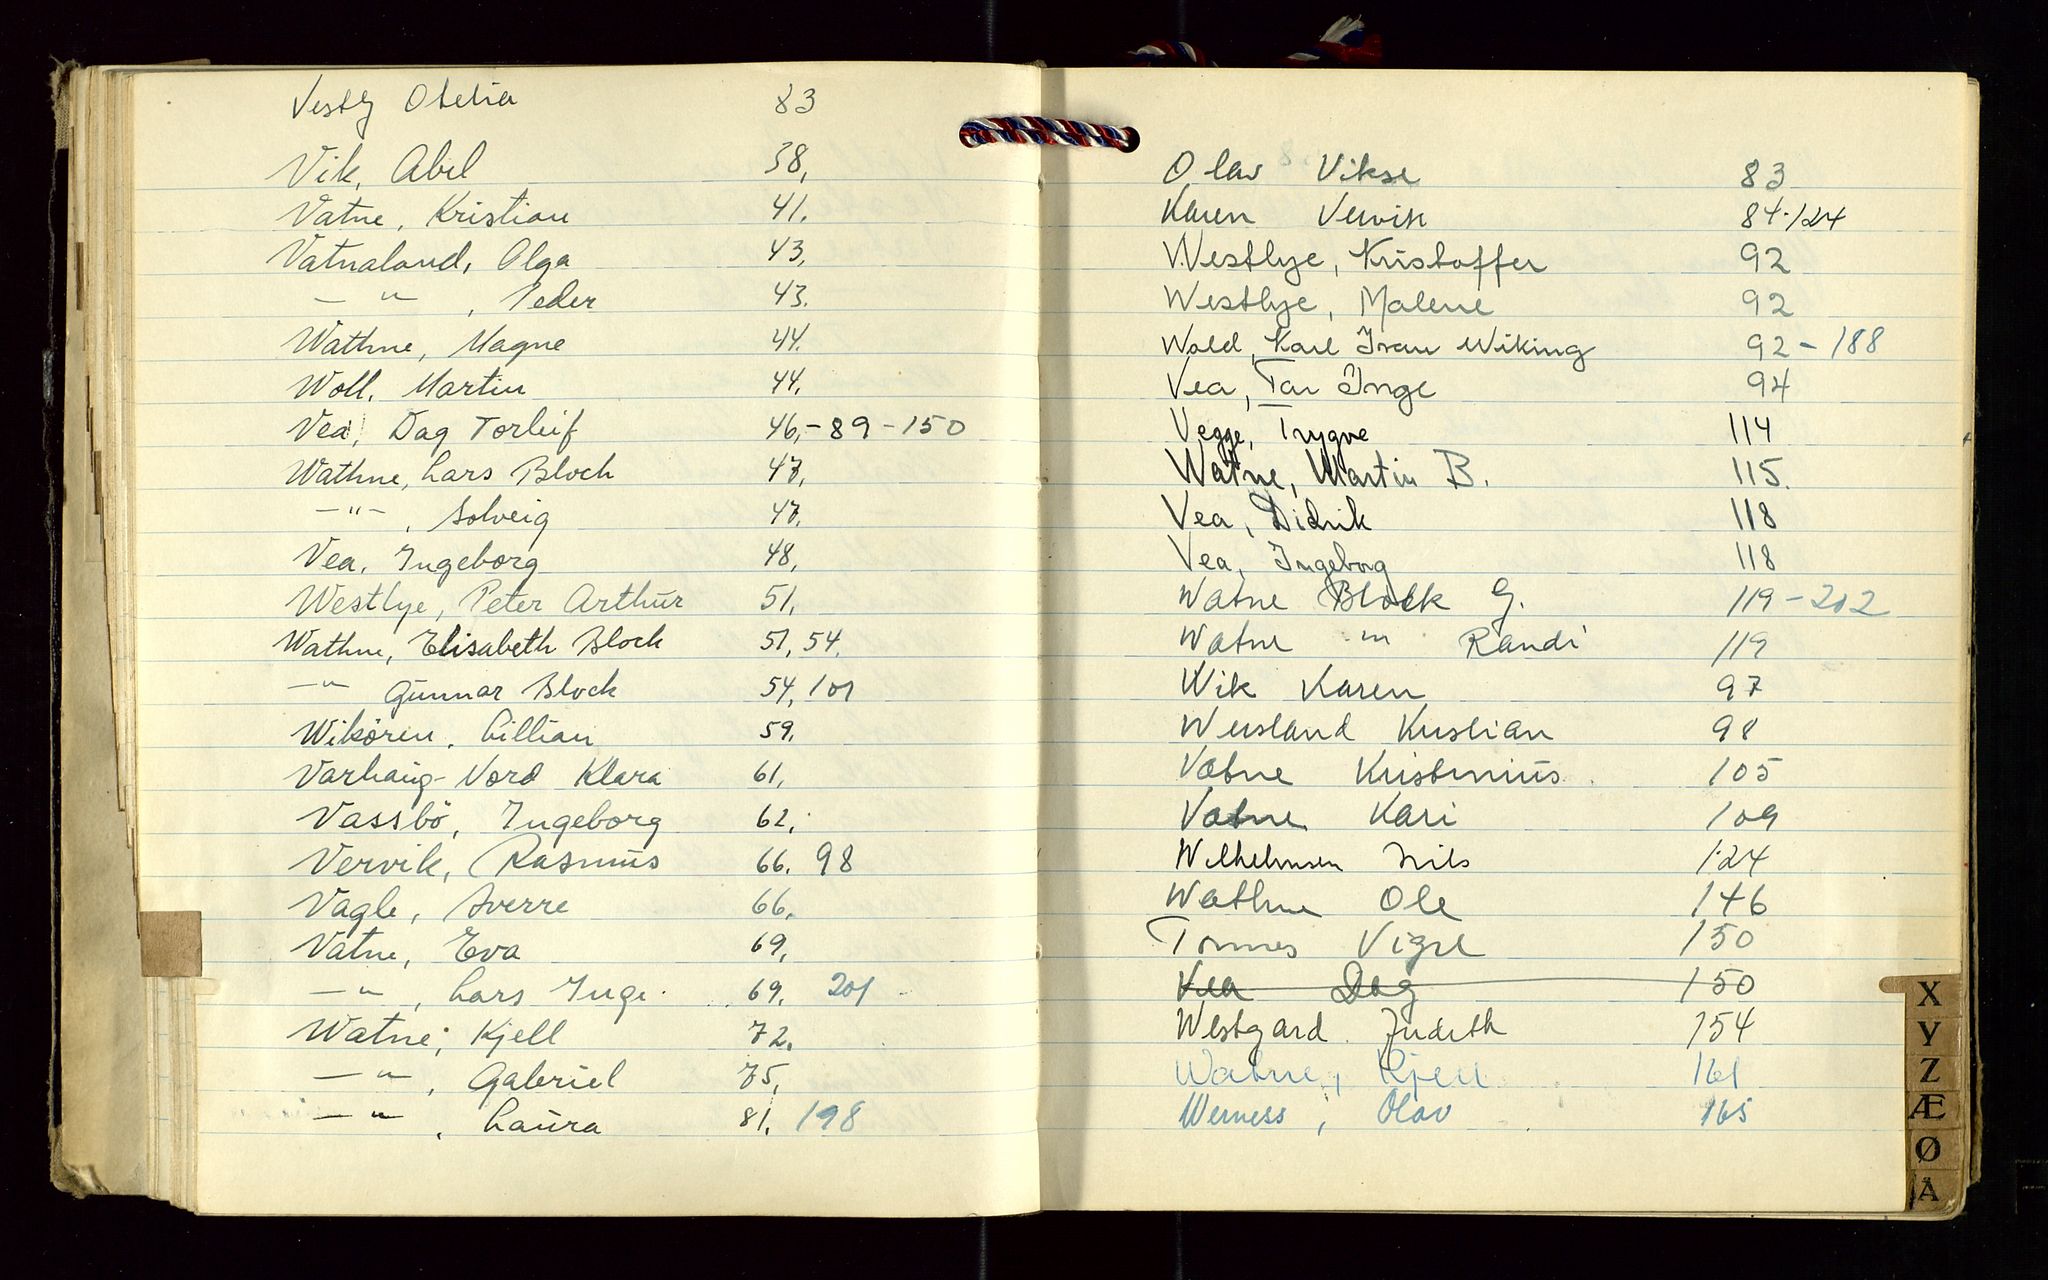 Vestly Otelia 83
Vik, Abel 38,
Vatne, Kristian 41.
Vatnaland, Olga 43,
— " — , Peder 43.
Wathne, Magne 44.
Woll, Martin 44.
Vea, Dag Torleif 46, - 89 - 150
Wathne, Lars Bloch 47,
—"— , Solveig 47.
Vea, Ingeborg 48,
Westlye, Peter Arthur 51,
Wathne, Elisabeth Block 51, 54.
—"— Gunnar Block 54, 101
Wikören, Lillian 59.
Varhaug-Nord Klara 61,
Vassbö, Ingeborg 62,
Vervik, Rasmus 66. 98
Vagle, Sverre 66.
Vatne, Eva 69,
—"— , Lars Inge 69, 201
Watne, Kjell 72.
—"— , Gabriel 75,
—"— , Laura 81, 198
Olav Vikse 83
Karen Vervik 84-124
Westlye, Kristoffer 92
Westlye, Malene 92
Wold, Karl Ivan Wiking 92 - 188
Vea, Tor Inge 94
Vegge, Trygve 114
Watne, Martin B. 115.
Vea, Didrik 118
Vea, Ingeborg 118
Watne Block G. 119 - 202
Watne " Randi 119
Wik Karen 97
Wersland Kristian 98
Vatne Kristinius 105
Vatne Kari 109
Wilhelmsen Nils 124
Wathne Ole 146
Tønnes Vigre 150
Vea Dag 150
Westgard Judith 154
Watne, Kjell 161
Werness, Olav 165
X
Y
Z
Æ
Ø
Å